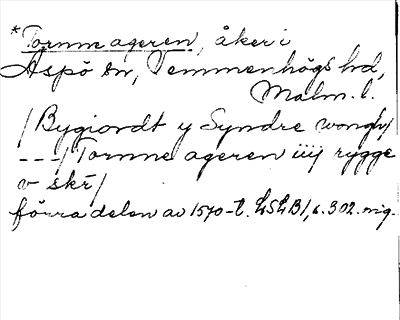 *Tornne ageren, åker i
Aspö sn, Vemmenhögs hd,
Malm. l.
/Bygiordt y Syndre wongh/
---/Tornne ageren iiij rygge
v skr/
förra delen av 1570-t. LSLB1, s. 302. mig.